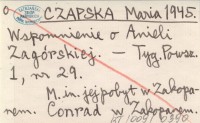 CZAPSKA Maria 1945.
Wspomnienie o Anieli
Zagórskiej. — Tyg. Powsz.
1, nr 29.
M. in. jej pobyt w Zakopa-
nem. Conrad w Zakopanem.